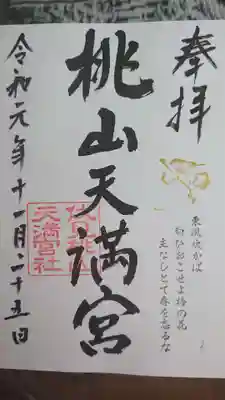 奉拝
東風吹かば
匂ひおこせよ梅の花
主なしとて春を忘るな
桃山天満宮
伏見桃山
天満宮社
令和元年十一月二十五日